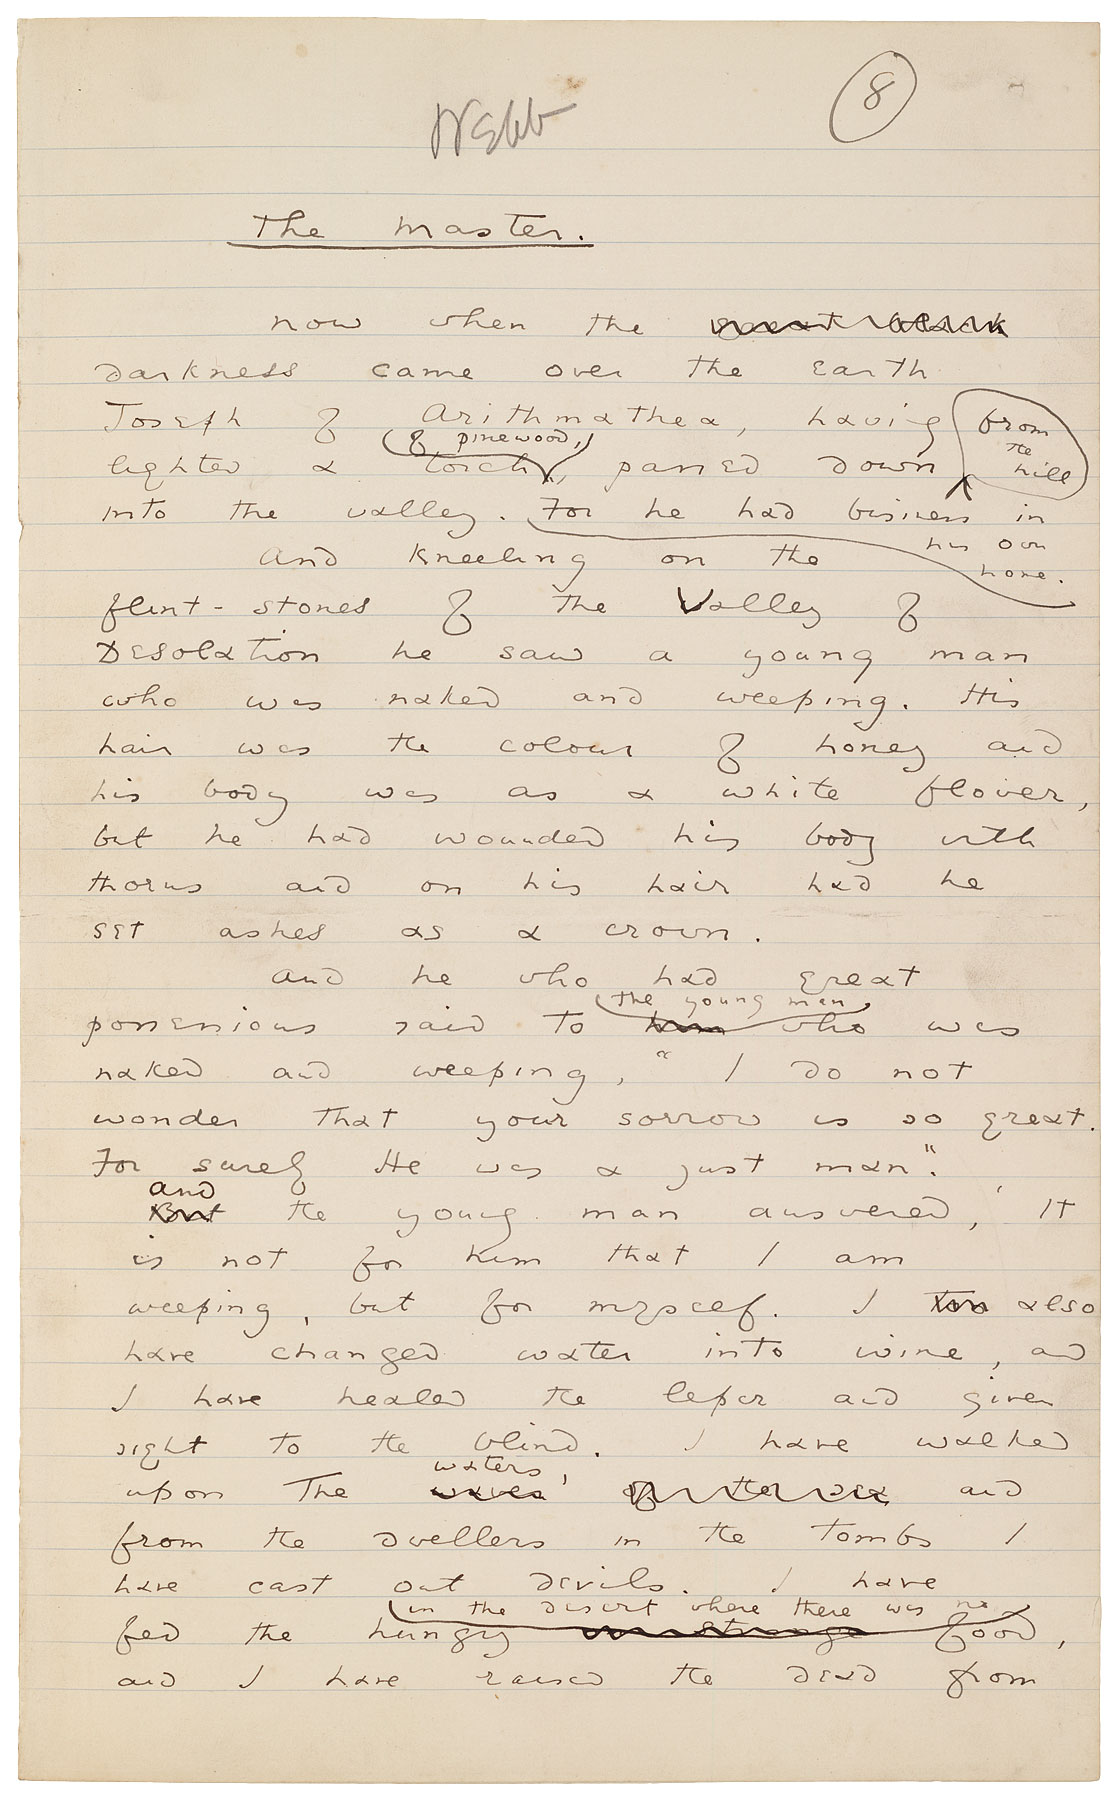 8
Webb
The Master.
Now when the
darkness came over the Earth
Joseph of Arithmathea, having from
the
of pinewood,
lighted a torch, passed down hill
into the valley. For he had business in
his own
home.
And kneeling on the
flint-stones of the Valley of
Desolation he saw a young man
who was naked and weeping. His
hair was the colour of honey and
his body was as a white flower,
but he had wounded his body with
thorns and on his hair had he
set ashes as a crown.
And he who had great
the young man
possessions said to him who was
naked and weeping, "I do not
wonder that your sorrow is so great.
For surely He was a just man".
and
But the young man answered, 'It
is not for him that I am
weeping, but for myself. I too also
have changed water into wine, and
I have healed the leper and given
sight to the blind. I have walked
waters,
upon the waves of the sea and
from the dwellers in the tombs I
have cast out devils. I have
in the desert where there was no
fed the hungry food,
and I have raised the dead from